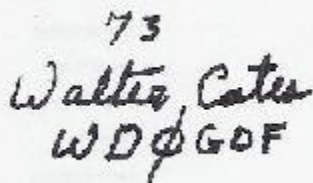 73
Walter Cates
WDØGOF